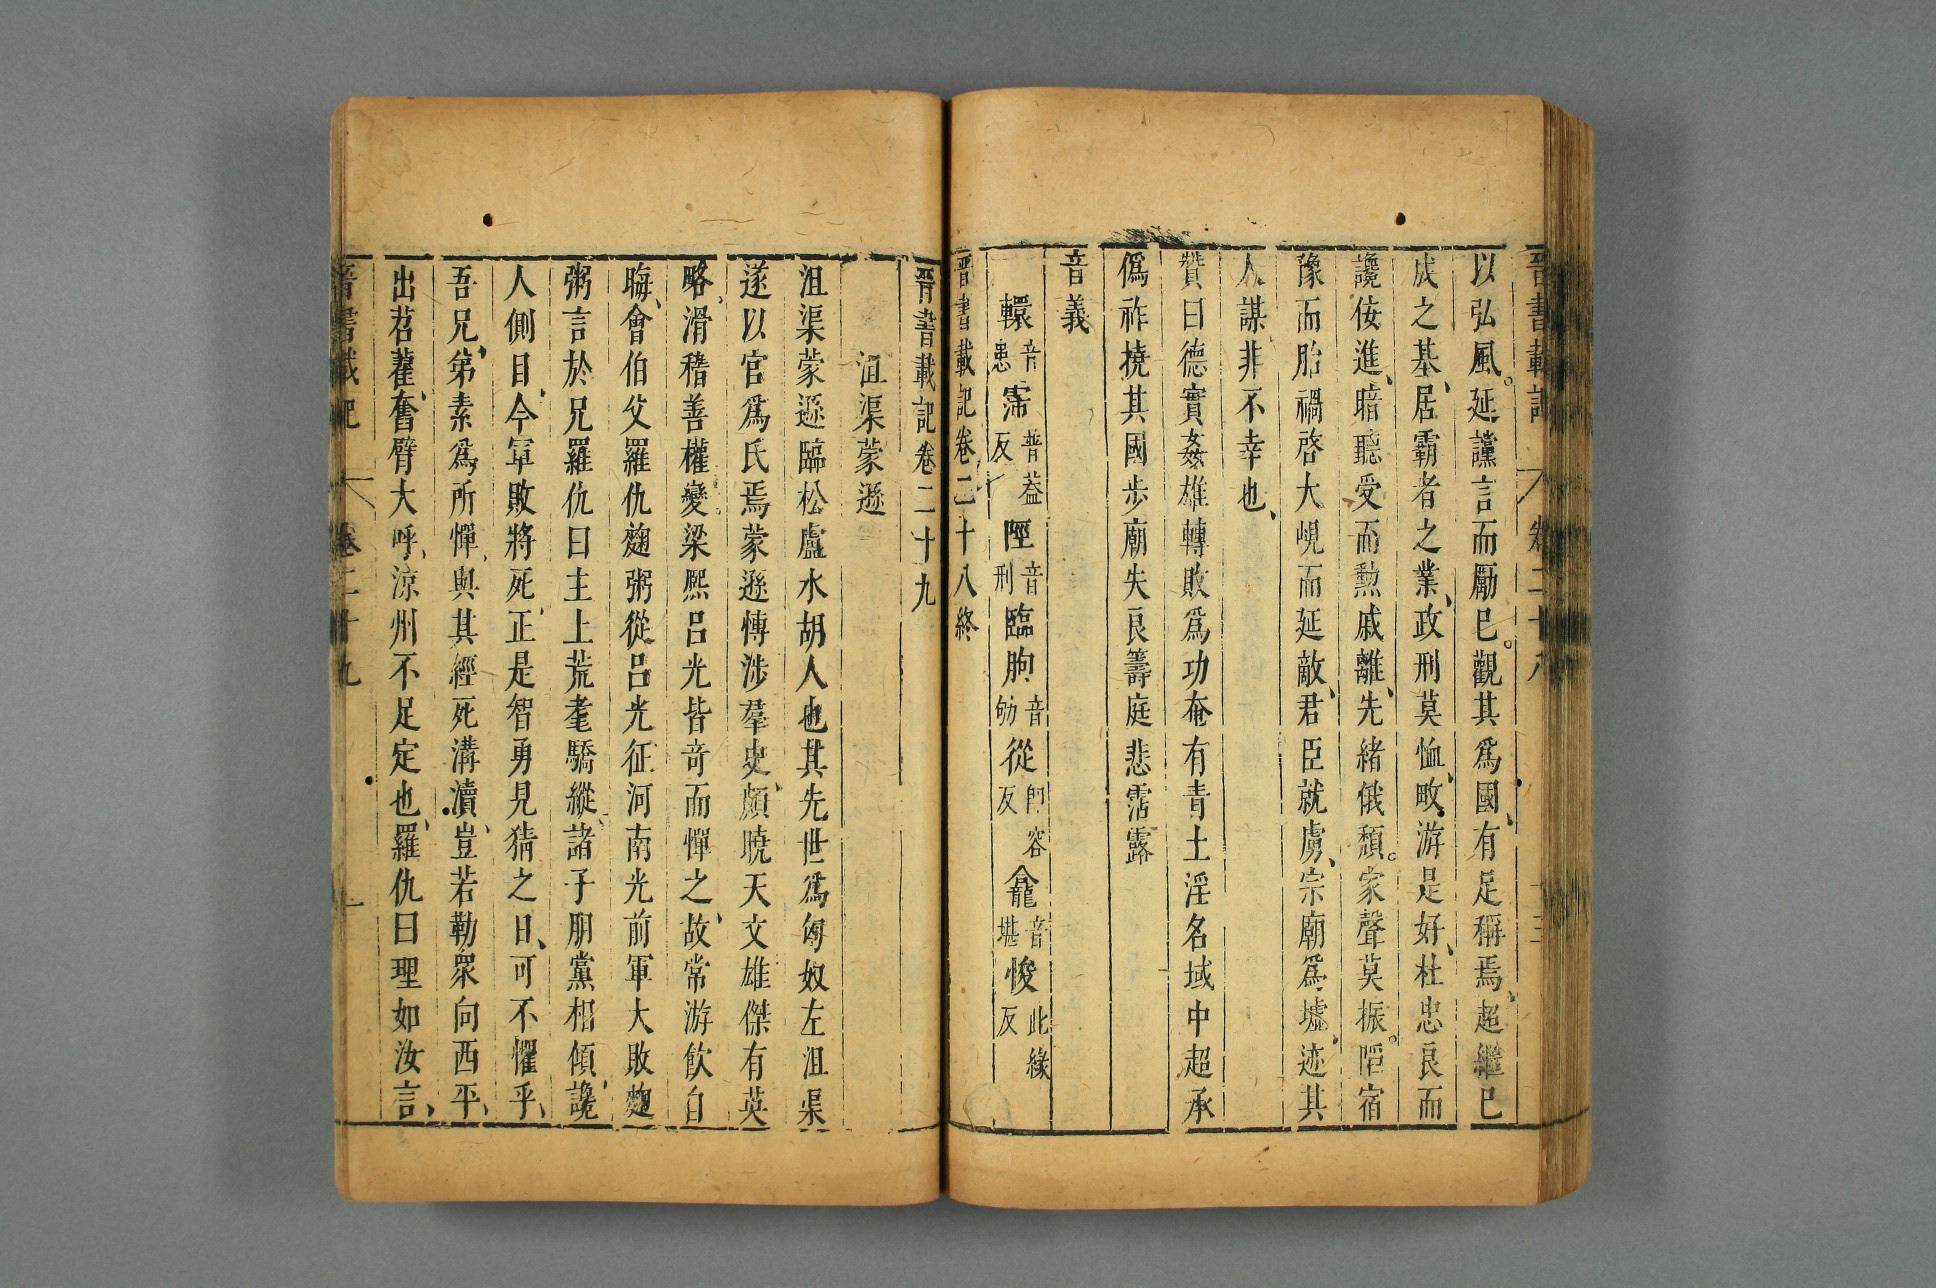 晉書載記 卷二十八 十三
以弘風延讜言而勵已觀其爲國有足稱焉超繼已
成之基居霸者之業政刑莫恤畋游是好杜忠良而
讒佞進暗聽受而勲戚離先緒俄頹家聲莫振陷宿
豫而胎禍啓大峴而延敵君臣就虜宗廟爲墟迹其
人謀非不幸也
贊曰德實姦雄轉敗爲功奄有青土淫名域中超承
僞祚撓其國步廟失良籌庭悲霑露
音義
轘音患霈普蓋反陘音刑臨朐音劬從即容反龕音堪悛此緣反
晉書載記卷二十八終
晉書載記卷二十九
沮渠蒙遜
沮渠蒙遜臨松盧水胡人也其先世爲匈奴左沮渠
遂以官爲氏焉蒙遜愽涉羣史頗曉天文雄傑有英
略滑稽善權變梁熙呂光皆奇而憚之故常游飲自
晦會伯父羅仇麹粥從呂光征河南光前軍大敗麹
粥言於兄羅仇曰主上荒耄驕縱諸子朋黨相傾讒
人側目今軍敗將死正是智勇見猜之日可不懼乎
吾兄弟素爲所憚與其經死溝瀆豈若勒衆向西平
出苕藋奮臂大呼涼州不足定也羅仇曰理如汝言
晉書載記 卷二十九 一